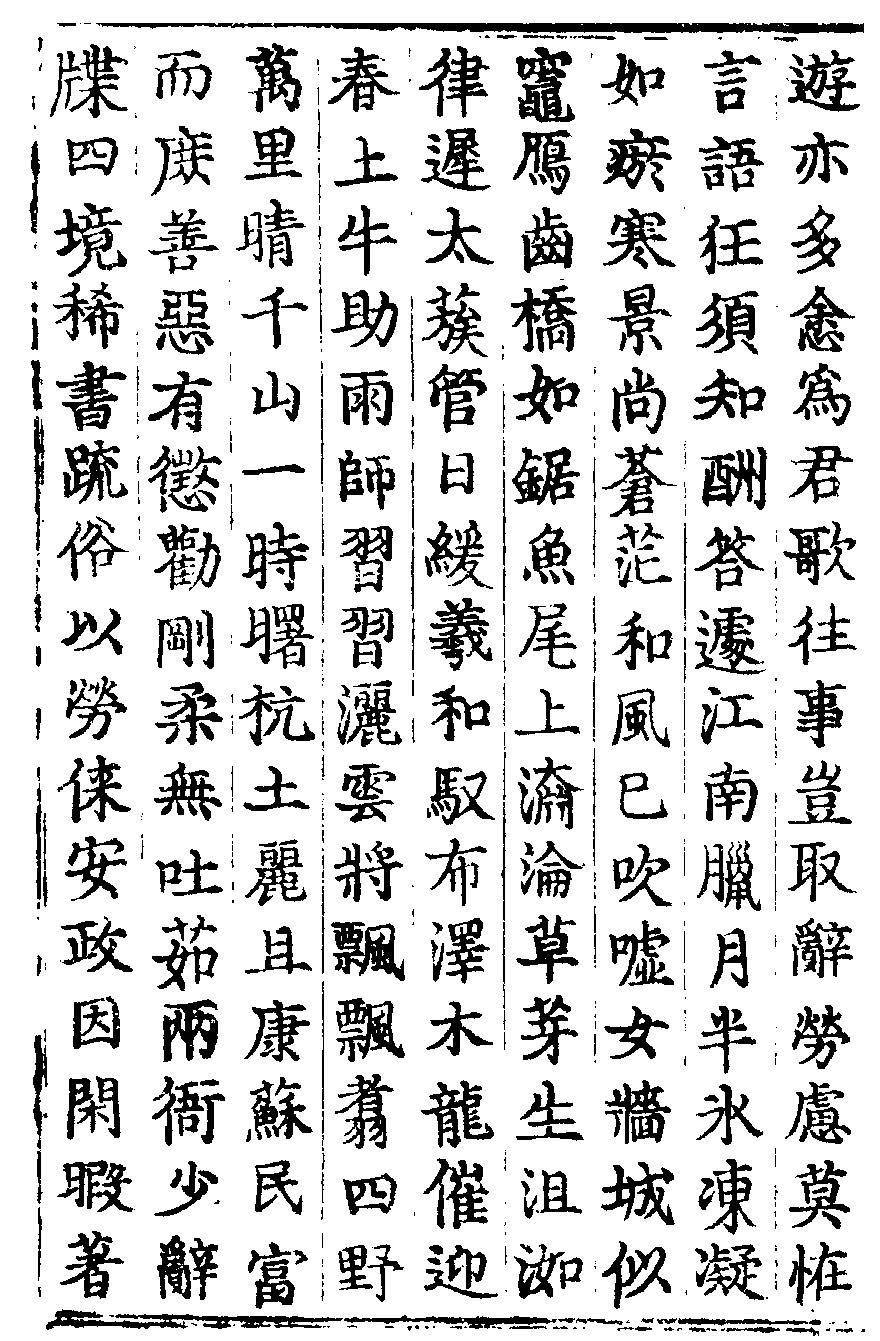 遊亦多悆爲君歌往事豈取辭勞慮莫恠
言語狂須知酬答遽江南臘月半氷凍凝
如瘀寒景尚蒼茫和風已吹噓女牆城似
竈鴈齒橋如鋸魚尾上奫淪草芽生沮洳
律遲太蔟管日緩羲和馭布澤木龍催迎
春土牛助雨師習習灑雲將飄飄翥四野
萬里晴千山一時曙杭土麗且康蘇民富
而庻善惡有懲勸剛柔無吐茹兩衙少辭
牒四境稀書疏俗以勞倈安政因閑暇著